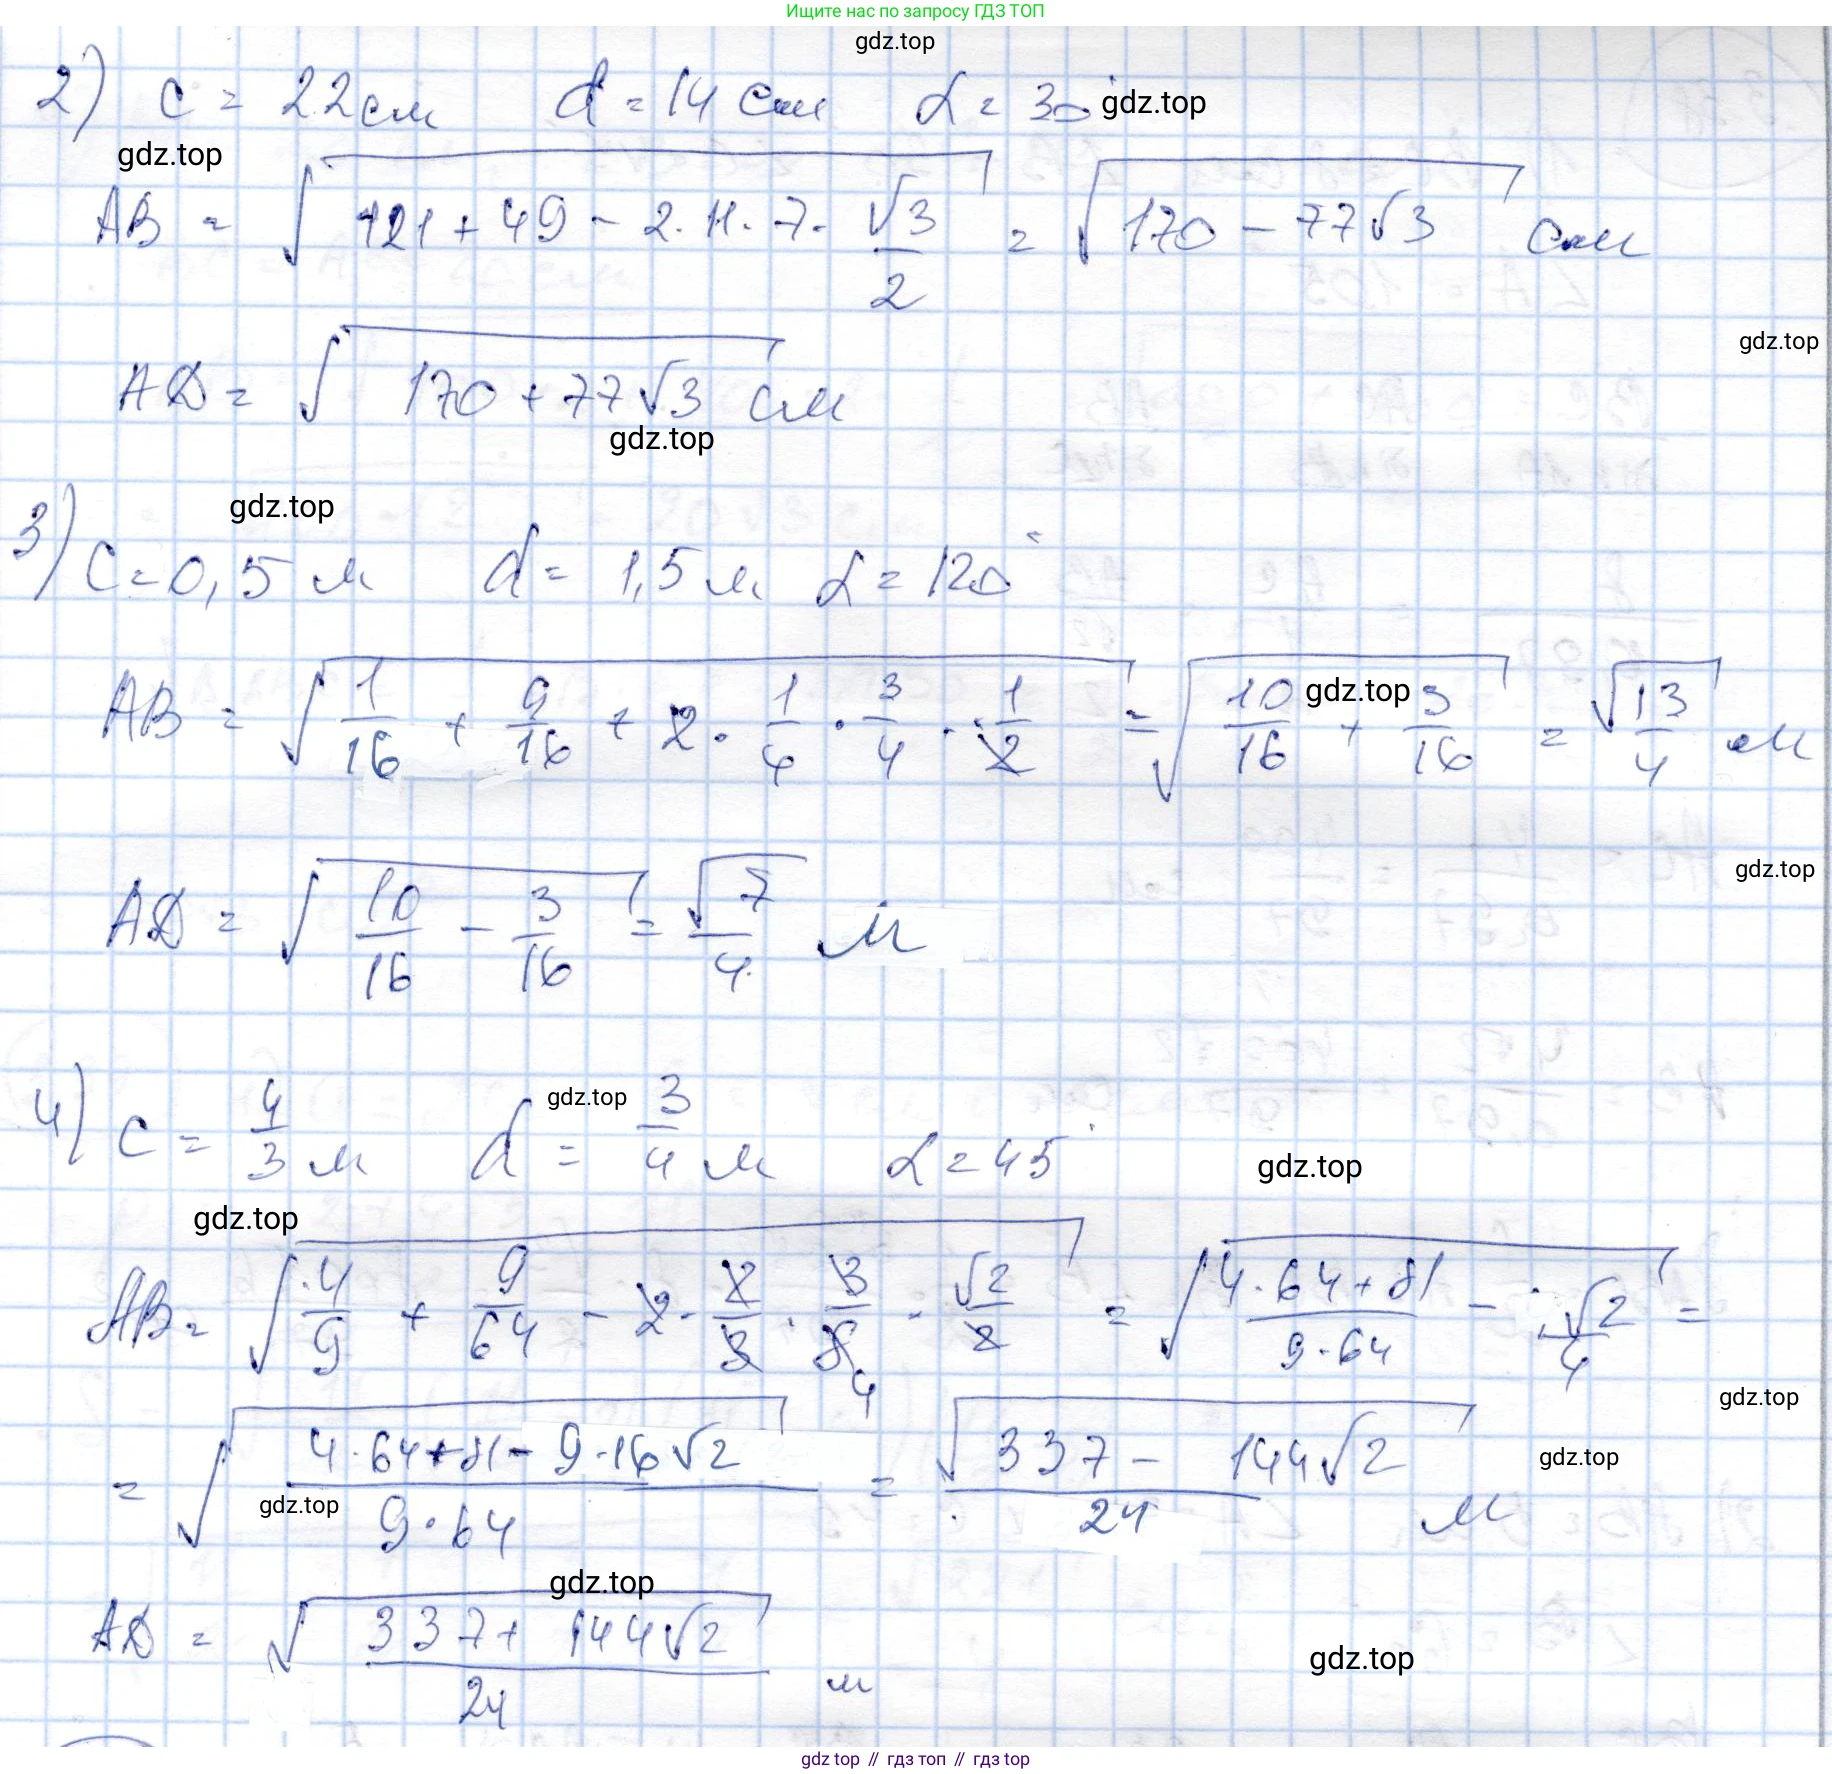 Ищите нас по запросу ГДЗ ТОП
gdz.top
2) c = 22 см d = 14 см α = 30° gdz.top
gdz.top
AB = √(121 + 49 - 2·11·7·√3/2) = √(170 - 77√3) см
gdz.top
AD = √(170 + 77√3) см
gdz.top
gdz.top
3) c = 0,5 м d = 1,5 м α = 120°
AB = √(1/16 + 9/16 + 2·1/4·3/4·1/2) = √(10/16 + 3/16) = √13/4 м
gdz.top
gdz.top
AD = √(10/16 - 3/16) = √7/4 м
gdz.top
4) c = 4/3 м d = 3/4 м α = 45°
gdz.top
gdz.top
AB = √(4/9 + 9/64 - 2·2/3·3/8 4·√2/2) = √((4·64+81)/(9·64) - √2/4) =
gdz.top
= √((4·64+81-9·16√2)/(9·64)) = √(337 - 144√2)/24 м
gdz.top
gdz.top
gdz.top
AD = √(337 + 144√2)/24 м
gdz.top
gdz top // гдз топ // гдз top